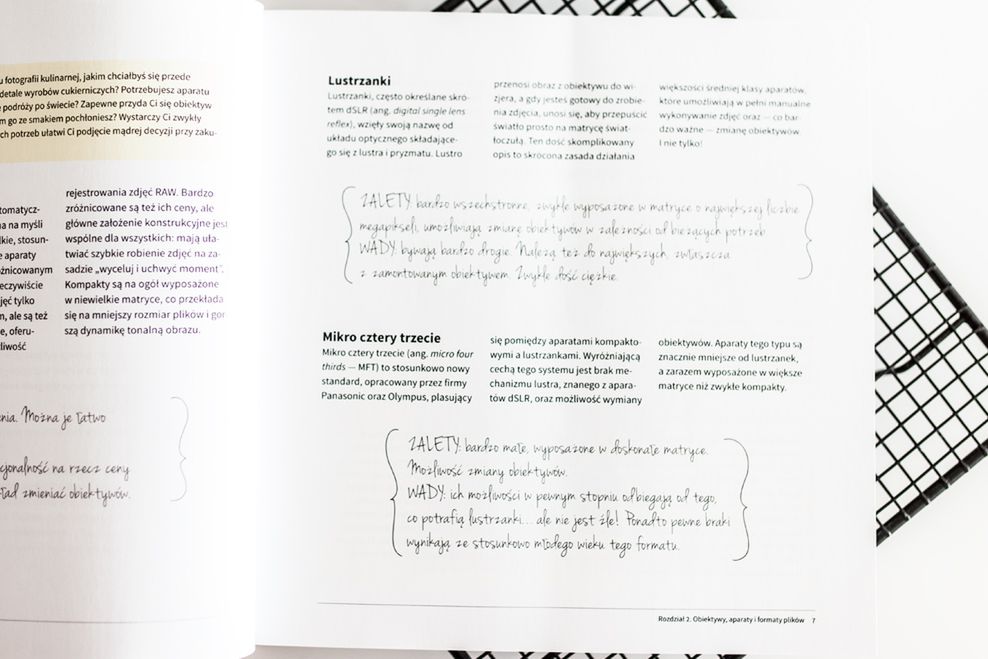 u fotografii kulinarnej, jakim chciałbyś się przede
detale wyrobów cukierniczych? Potrzebujesz aparatu
podróży po świecie? Zapewne przyda Ci się obiektyw
m go ze smakiem pochłoniesz? Wystarczy Ci zwykły
ch potrzeb ułatwi Ci podjęcie mądrej decyzji przy zaku-
tomatycz-
na na myśli
lkie, stosun-
e aparaty
óżnicowanym
eczywiście
jęć tylko
m, ale są też
e, oferu-
liwość
rejestrowania zdjęć RAW. Bardzo
zróżnicowane są też ich ceny, ale
główne założenie konstrukcyjne jest
wspólne dla wszystkich: mają uła-
twiać szybkie robienie zdjęć na za-
sadzie „wyceluj i uchwyć moment”.
Kompakty są na ogół wyposażone
w niewielkie matryce, co przekłada
się na mniejszy rozmiar plików i gor
szą dynamikę tonalną obrazu.
enia. Można je łatwo
cjonalność na rzecz ceny
ład zmieniać obiektywów.
Lustrzanki
Lustrzanki, często określane skró-
tem dSLR (ang. digital single lens
reflex), wzięły swoją nazwę od
układu optycznego składające-
go się z lustra i pryzmatu. Lustro
przenosi obraz z obiektywu do wi-
zjera, a gdy jesteś gotowy do zrobie-
nia zdjęcia, unosi się, aby przepuścić
światło prosto na matrycę świat-
łoczułą. Ten dość skomplikowany
opis to skrócona zasada działania
większości średniej klasy aparatów,
które umożliwiają w pełni manualne
wykonywanie zdjęć oraz — co bar-
dzo ważne — zmianę obiektywów.
I nie tylko!
ZALETY: bardzo wszechstronne, zwykle wyposażone w matryce o największej liczbie
megapikseli, umożliwiają zmianę obiektywów w zależności od bieżących potrzeb
WADY: bywają bardzo drogie. Należą też do największych, zwłaszcza
z zamontowanym obiektywem. Zwykle dość ciężkie.
Mikro cztery trzecie
Mikro cztery trzecie (ang. micro four
thirds — MFT) to stosunkowo nowy
standard, opracowany przez firmy
Panasonic oraz Olympus, plasujący
się pomiędzy aparatami kompakto-
wymi a lustrzankami. Wyróżniającą
cechą tego systemu jest brak me-
chanizmu lustra, znanego z apara-
tów dSLR, oraz możliwość wymiany
obiektywów. Aparaty tego typu są
znacznie mniejsze od lustrzanek,
a zarazem wyposażone w większe
matryce niż zwykłe kompakty.
ZALETY: bardzo małe, wyposażone w doskonałe matryce.
Możliwość zmiany obiektywów.
WADY: ich możliwości w pewnym stopniu odbiegają od tego,
co potrafią lustrzanki... ale nie jest źle! Ponadto pewne braki
wynikają ze stosunkowo młodego wieku tego formatu.
Rozdział 2. Obiektywy, aparaty i formaty plików 7